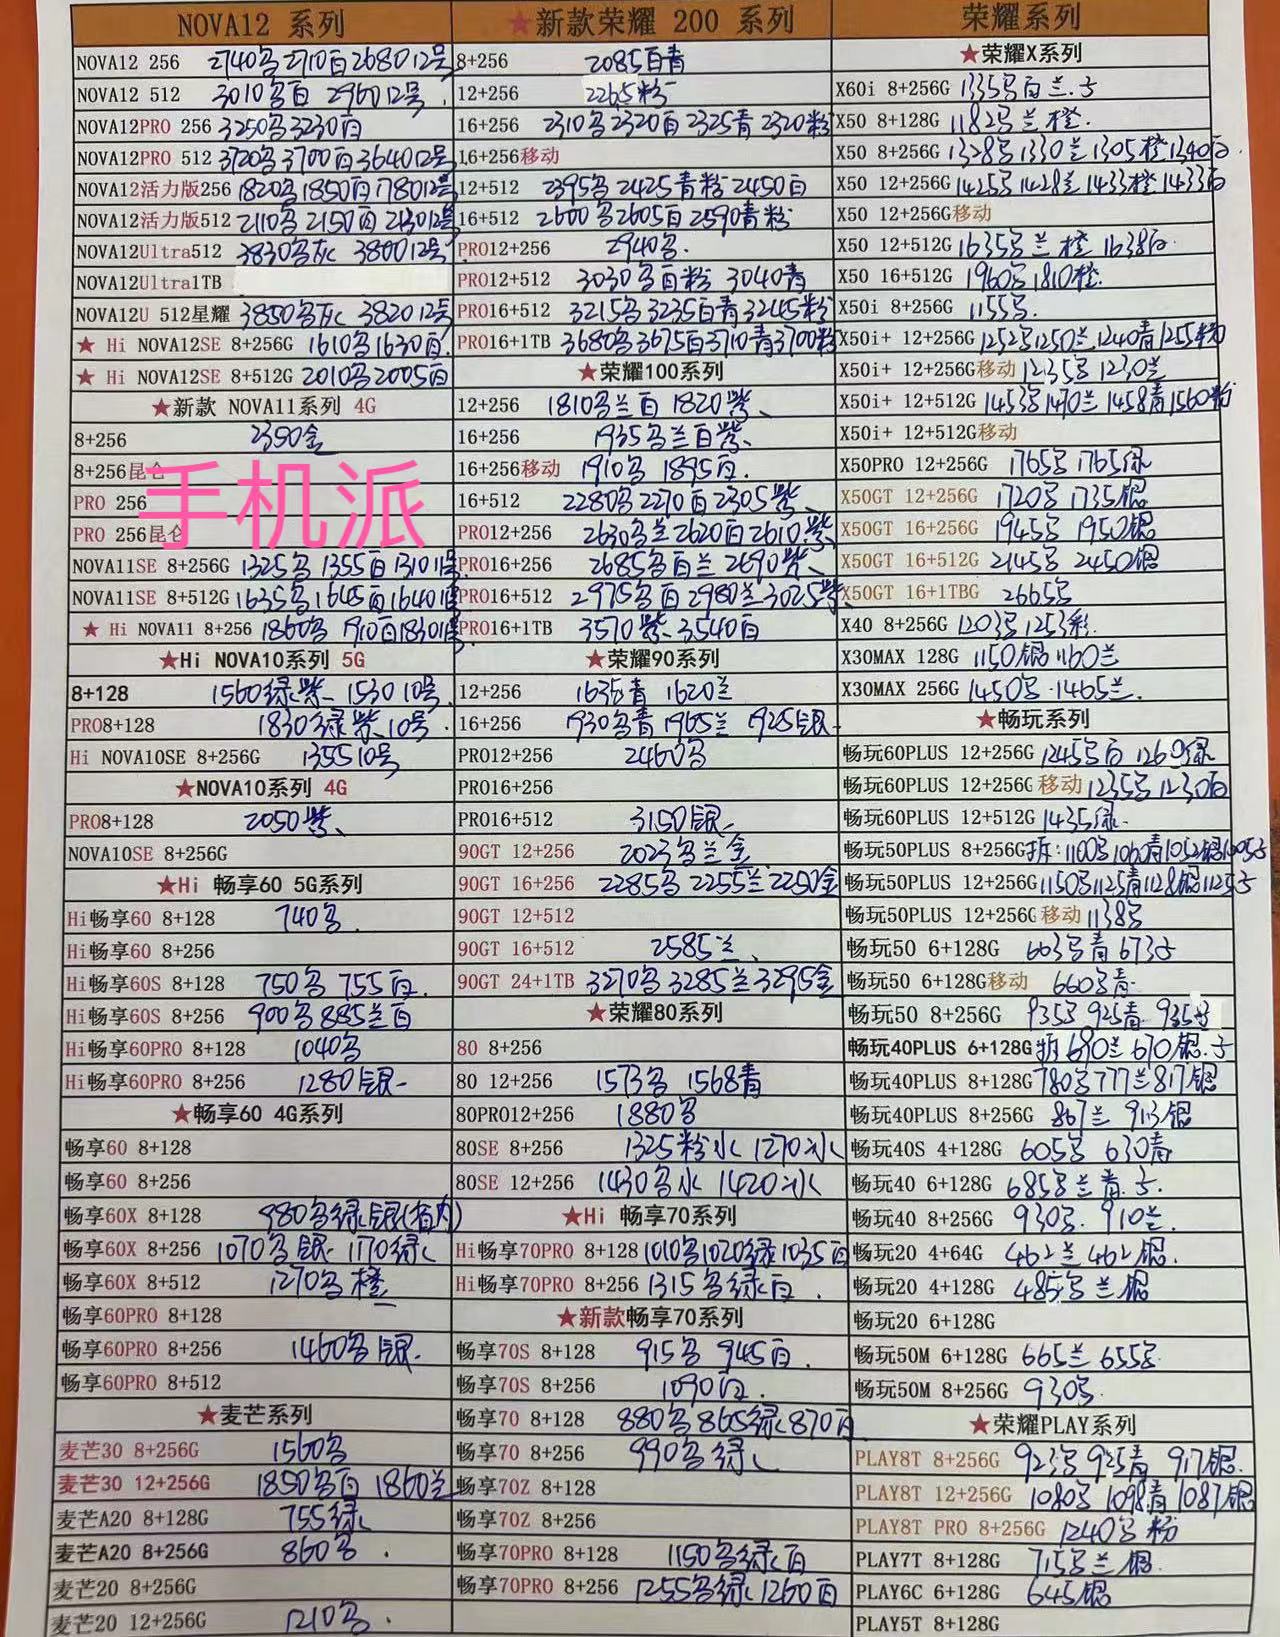 NOVA12 系列
NOVA12 256 2740多2710白2680 12号
NOVA12 512 3010多白 2960 12号
NOVA12PRO 256 3250多3230白
NOVA12PRO 512 3720多3700白3640 12号
NOVA12活力版256 1820多1850白1780 12号
NOVA12活力版512 2110多2150白2130 12号
NOVA12Ultra512 3830多灰 3800 12号
NOVA12Ultra1TB
NOVA12U 512星耀 3850多灰 3820 12号
★ Hi NOVA12SE 8+256G 1610多1630白
★ Hi NOVA12SE 8+512G 2010多2005白
★新款 NOVA11系列 4G
8+256 2350金
8+256昆仑
手机派
PRO 256
PRO 256昆仑
NOVA11SE 8+256G 1325多 1355白1310 11号
NOVA11SE 8+512G 1635多1645白1640 11号
★ Hi NOVA11 8+256 1860多 1910白1830 11号
★Hi NOVA10系列 5G
8+128 1560绿紫 1530 10号
PRO8+128 1830绿紫10号
Hi NOVA10SE 8+256G 1355 10号
★NOVA10系列 4G
PRO8+128 2050紫
NOVA10SE 8+256G
★Hi 畅享60 5G系列
Hi畅享60 8+128 740多
Hi畅享60 8+256
Hi畅享60S 8+128 750多 755白
Hi畅享60S 8+256 900多885兰白
Hi畅享60PRO 8+128 1040多
Hi畅享60PRO 8+256 1280银
★畅享60 4G系列
畅享60 8+128
畅享60 8+256
畅享60X 8+128 980多绿银(省内)
畅享60X 8+256 1070多银 1170绿
畅享60X 8+512 1270多橙
畅享60PRO 8+128
畅享60PRO 8+256 1460多银
畅享60PRO 8+512
★麦芒系列
麦芒30 8+256G 1560多
麦芒30 12+256G 1850多白 1860兰
麦芒A20 8+128G 755绿
麦芒A20 8+256G 860多
麦芒20 8+256G
麦芒20 12+256G 1210多
★新款荣耀 200 系列
8+256 2085白青
12+256 2265粉
16+256 2310多2320白2325青2320粉
16+256移动
12+512 2395多2425青粉2450白
16+512 2600多2605白2590青粉
PRO12+256 2940多
PRO12+512 3030多白粉 3040青
PRO16+512 3215多3235白青3245粉
PRO16+1TB 3680多3675白3710青3700粉
★荣耀100系列
12+256 1810多兰白 1820紫
16+256 1935多兰白紫
16+256移动 1910多 1895白
16+512 2280多2270白2305紫
PRO12+256 2630多兰2620白2610紫
PRO16+256 2685多白兰2690紫
PRO16+512 2975多白2980兰3025紫
PRO16+1TB 3570紫 3540白
★荣耀90系列
12+256 1635青 1620兰
16+256 1930多青1965兰 1925银
PRO12+256 2460多
PRO16+256
PRO16+512 3150银
90GT 12+256 2023多兰金
90GT 16+256 2285多2255兰2250金
90GT 12+512
90GT 16+512 2585兰
90GT 24+1TB 3270多3285兰3295金
★荣耀80系列
80 8+256
80 12+256 1573多 1568青
80PRO12+256 1880多
80SE 8+256 1325粉水 1270冰
80SE 12+256 1430多水 1420冰
★Hi 畅享70系列
Hi畅享70PRO 8+128 1010多1020绿1035白
Hi畅享70PRO 8+256 1315多绿白
★新款畅享70系列
畅享70S 8+128 915多 945白
畅享70S 8+256 1090白
畅享70 8+128 880多865绿870白
畅享70 8+256 990多绿
畅享70Z 8+128
畅享70Z 8+256
畅享70PRO 8+128 1150多绿白
畅享70PRO 8+256 1255多绿1260白
荣耀系列
★荣耀X系列
X60i 8+256G 1335多白兰
X50 8+128G 1182多兰橙
X50 8+256G 1328多1330兰1305橙1340白
X50 12+256G 1425多1428兰1433橙1433白
X50 12+256G移动
X50 12+512G 1635多兰橙 1638白
X50 16+512G 1960多1810橙
X50i 8+256G 1155多
X50i+ 12+256G 1252多1250兰1240青1255粉
X50i+ 12+256G移动 1235多1230兰
X50i+ 12+512G 1453多1470兰1458青1560粉
X50i+ 12+512G移动
X50PRO 12+256G 1765多1765绿
X50GT 12+256G 1720多1735银
X50GT 16+256G 1945多 1950银
X50GT 16+512G 2145多 2450银
X50GT 16+1TBG 2665多
X40 8+256G 1203多1253彩
X30MAX 128G 1150银1160兰
X30MAX 256G 1450多1465兰
★畅玩系列
畅玩60PLUS 12+256G 1245多白 1260绿
畅玩60PLUS 12+256G 移动1235多1230白
畅玩60PLUS 12+512G 1435绿
畅玩50PLUS 8+256G 拆:1100多1060青1052银
畅玩50PLUS 12+256G 1150多1125青1128银
畅玩50PLUS 12+256G 移动1138多
畅玩50 6+128G 663多青673
畅玩50 6+128G移动 660多青
畅玩50 8+256G 935多925青935
畅玩40PLUS 6+128G 拆690兰670银
畅玩40PLUS 8+128G 780多777兰817银
畅玩40PLUS 8+256G 867兰 913银
畅玩40S 4+128G 605多 630青
畅玩40 6+128G 685多兰青
畅玩40 8+256G 930多 910兰
畅玩20 4+64G 462兰462银
畅玩20 4+128G 485多兰银
畅玩20 6+128G
畅玩50M 6+128G 665兰655多
畅玩50M 8+256G 930多
★荣耀PLAY系列
PLAY8T 8+256G 923多925青917银
PLAY8T 12+256G 1080多1098青1087银
PLAY8T PRO 8+256G 1240多粉
PLAY7T 8+128G 715多兰银
PLAY6C 6+128G 645银
PLAY5T 8+128G